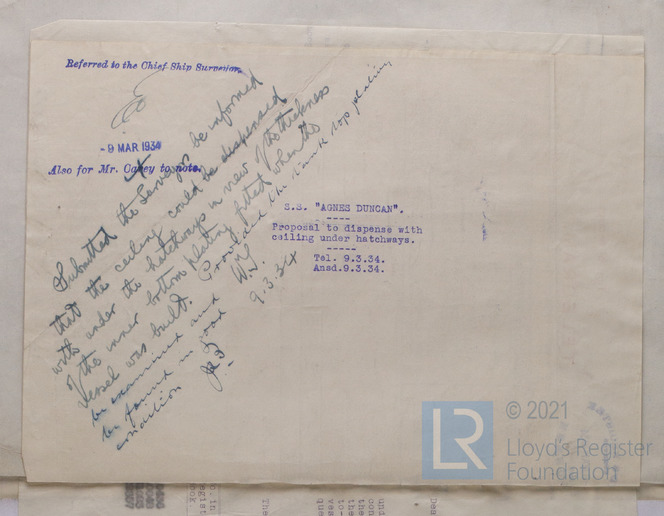 Referred to the Chief Ship Surveyor.
- 9 MAR 1934
Also for Mr. Casey to note.
Submitted the Surveyor be informed
that the ceiling could be dispensed
with under the hatchways in view of the thickness
of the inner bottom plating fitted when the
vessel was built. Provided the tank top plating
be examined and
be found in good
condition
9.3.34
S.S. "AGNES DUNCAN".
----
Proposal to dispense with
ceiling under hatchways.
-----
Tel. 9.3.34.
Ansd.9.3.34.
LR
© 2021
Lloyd's Register
Foundation